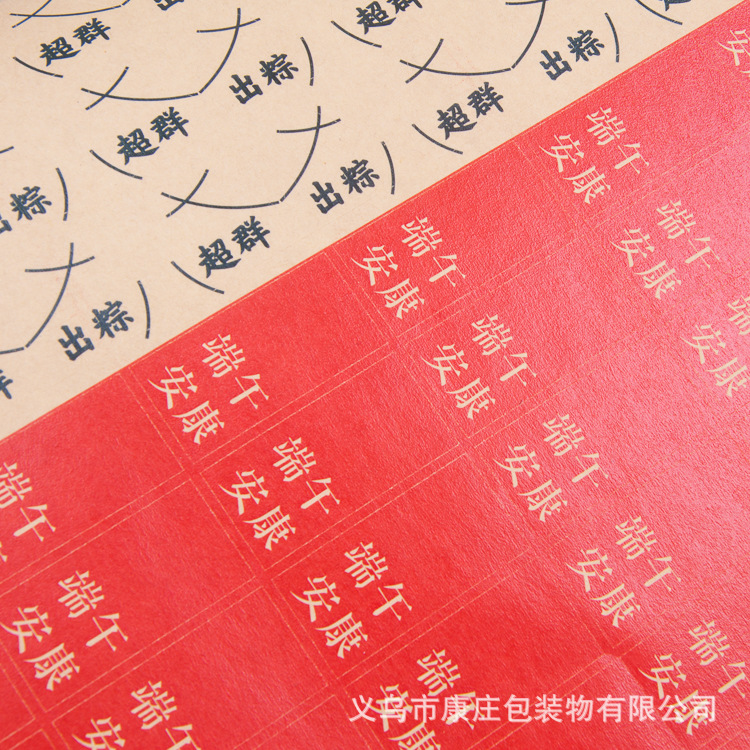 超群
出粽
超群
出粽
超群
出粽
超群
出粽
超群
出粽
端午
安康
端午
安康
端午
安康
端午
安康
端午
安康
端午
安康
端午
安康
端午
安康
端午
安康
端午
安康
端午
安康
端午
安康
端午
安康
端午
安康
端午
安康
义乌市康庄包装物有限公司